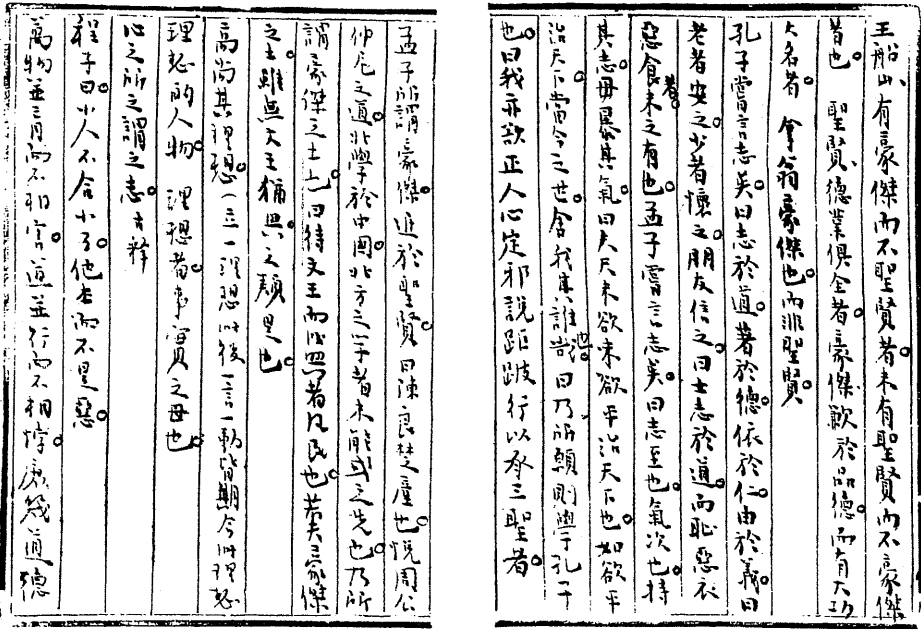 王船山、有豪傑而不聖賢者。未有聖賢而不豪傑
者也。 聖賢、德業俱全者。豪傑歉於品德。而有大功
大名者。 拿翁豪傑也。而非聖賢。
孔子嘗言志矣。曰志於道。著於德。依於仁。由於義。曰
老者安之。少者懷之。朋友信之。曰士志於道。而恥惡衣
惡食者。未之有也。孟子嘗言志矣。曰志至也。氣次也。持
其志。毋暴其氣。曰夫天未欲平治天下也。如欲平
治天下。當今之世。舍我其誰也。曰乃所願則學孔子
也。曰我亦欲正人心。定邪說。距跛行。以承三聖者。
孟子所謂豪傑。近於聖賢。曰陳良楚產也。悅周公
仲尼之道。北學於中國。北方之學者。未能或之先也。乃所
謂豪傑之士也。曰待文王而後興者凡民也。若夫豪傑
之士。雖無文王猶興。之類是也。
高尚其理想(立一理想此後一言一動皆期合此理想
理想的人物。 理想者事實之母也。
心之所之謂之志。 古釋
程子曰。小人不合小了。他本而不是惡。
萬物並育而不相害。道並行而不相悖。庶幾道德